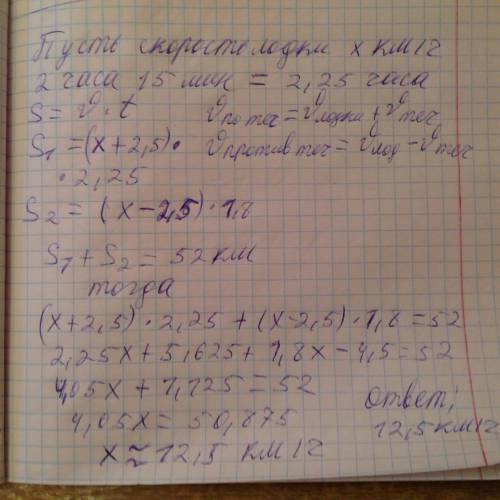 Пусть скорость лодки x км/г
2 часа 15 мин = 2,25 часа
S = v · t     v по теч = v лодки + v теч
S1 = (x + 2,5) ·     v против теч = v лод - v теч
· 2,25
S2 = (x - 2,5) · 1,8
S1 + S2 = 52 км
тогда
(x + 2,5) · 2,25 + (x - 2,5) · 1,8 = 52
2,25x + 5,625 + 1,8x - 4,5 = 52
4,05x + 1,125 = 52
4,05x = 50,875
x ≈ 12,5 км/г
ответ;
12,5 км/г